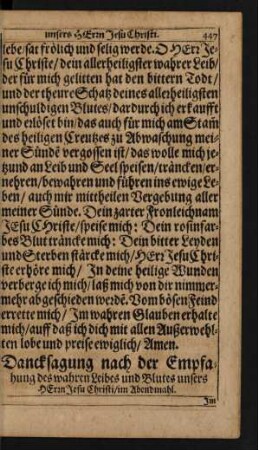 unsers HErrn Jesu Christi. 447
lebe/sat frölich und selig werde. O HErr Je-
su Christe/ dein allerheiligster wahrer Leib/
der für mich gelitten hat den bittern Todt/
und der theure Schatz deines allerheiligsten
unschuldigen Blutes/dardurch ich erkaufft
und erlöset bin/das auch für mich am Stam̃
des heiligen Creutzes zu Abwaschung mei-
ner Sündẽ vergossen ist/das wolle mich je-
tzund an Leib und Seel speisen/träncken/er-
nehren/bewahren und führen ins ewige Le-
ben/ auch mir mittheilen Vergebung aller
meiner Sünde. Dein zarter Fronleichnam
JEsu CHriste/speise mich: Dein rosinfar-
bes Blut träncke mich: Dein bitter Leyden
und Sterben stärcke mich/HErr Jesu Chri-
ste erhöre mich/ In deine heilige Wunden
verberge ich mich/laß mich von dir nimmer-
mehr abgeschieden werdẽ. Vom bösen Feind
errette mich/ Im wahren Glauben erhalte
mich/auff daß ich dich mit allen Außerwehl-
ten lobe und preise ewiglich/ Amen.
Dancksagung nach der Empfa-
hung des wahren Leibes und Blutes unsers
HErrn Jesu Christi/im Abendmahl.
Im